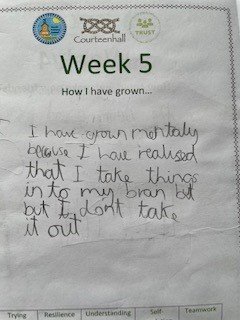 Courteenhall
TRUST
Week 5
How I have grown...
I have grown mentaly
because I have realised
that I take things
in to my bran but
but I don't take
it out
Trying Resilience Understanding Self- Teamwork